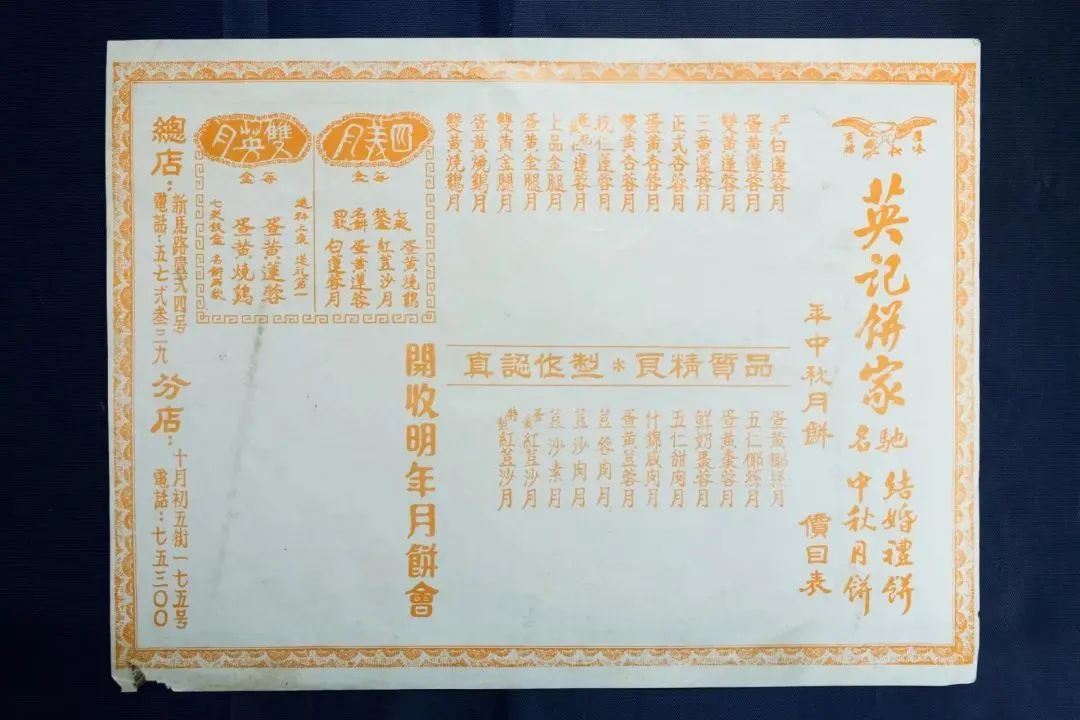 英記餅家
馳名
結婚禮餅
中秋月餅
年中秋月餅
價目表
正式白蓮蓉月
蛋黃蓮蓉月
雙黃蓮蓉月
三黃蓮蓉月
正式杏蓉月
蛋黃杏蓉月
雙黃杏蓉月
欖仁蓮蓉月
上品金腿月
蛋黃金腿月
雙黃金腿月
蛋黃燒鷄月
雙黃燒鷄月
品質精良*型作認真
蛋黃椰絲月
五仁椰絲月
蛋黃棗蓉月
鮮奶蛋蓉月
五仁甜肉月
什錦咸肉月
蛋黃荳蓉月
荳蓉肉月
荳沙肉月
荳沙素月
蛋黃紅荳沙月
紅荳沙月
四義月
每盒
七彩
鐵盒
名餅
四款
蛋黃燒鷄
紅荳沙月
蛋黃蓮蓉
白蓮蓉月
雙英月
每盒
選料上乘 送礼第一
蛋黃蓮蓉
蛋黃燒鷄
七彩鉄盒 名餅兩款
開收明年月餅會
總店：新馬路壹弍四号
電話：五七弍叁三九
分店：十月初五街一七五号
電話：七五三〇〇